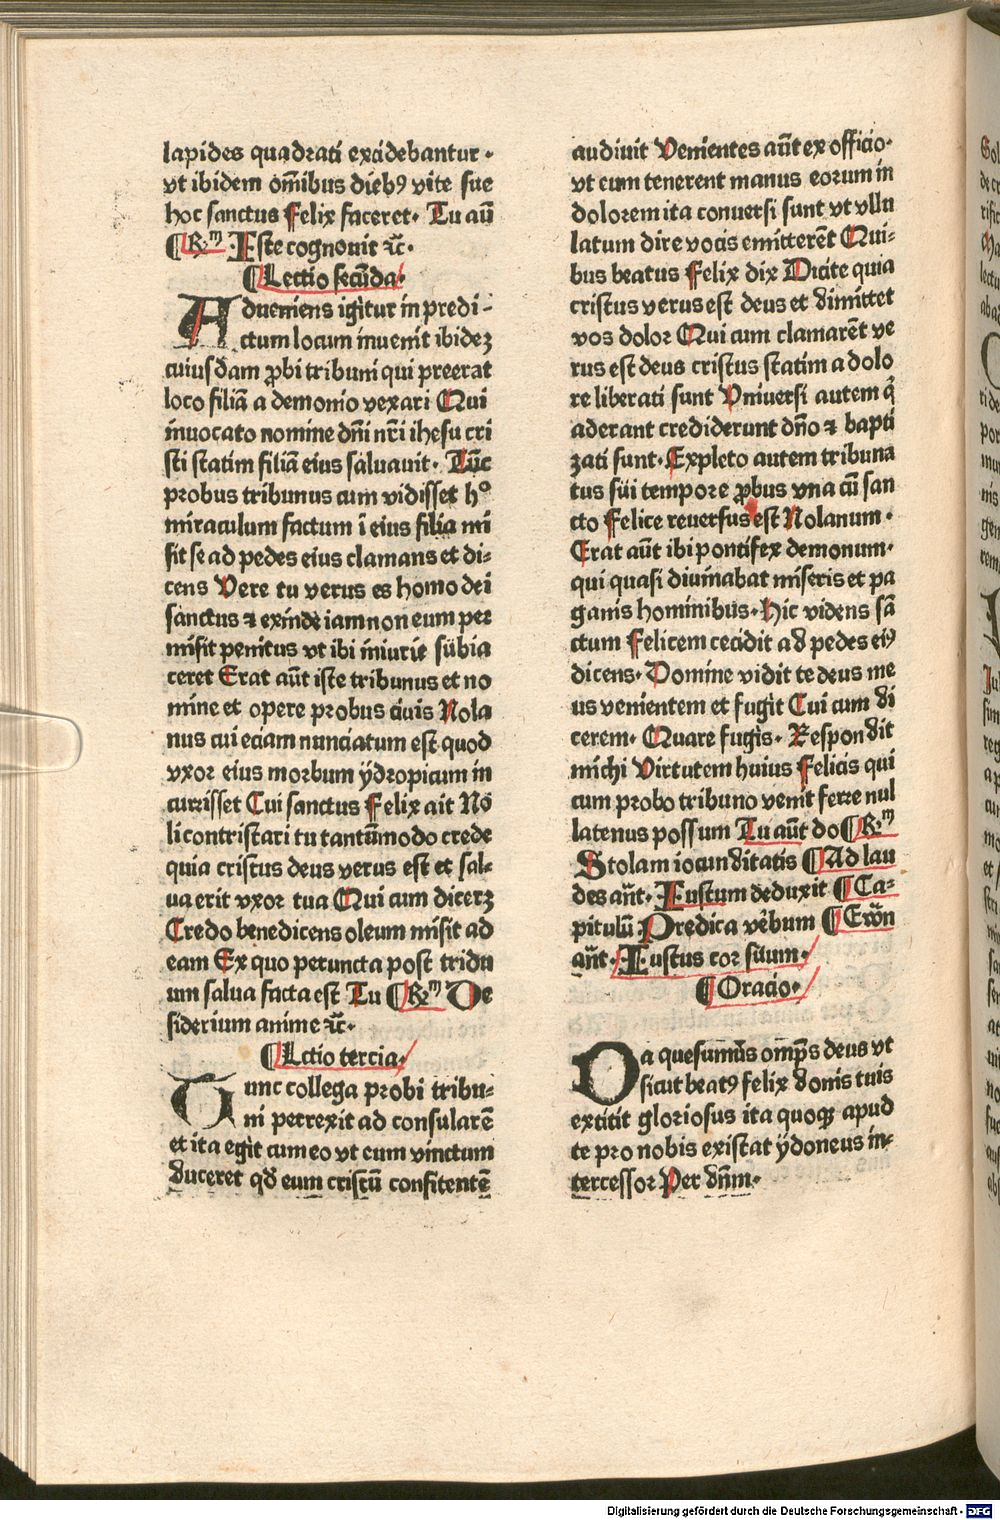 lapides quadrati excidebantur·
vt ibidem om̄ibus diebꝰ vite sue
hoc sanctus Felix faceret· Tu aū
¶ R·ᵐ Iste cognouit ⁊c̄·
¶ Lectio secūda·
Adueniens igitur in predi-
ctum locum inuenit ibidez
cuiusdam ꝓbi tribuni qui preerat
loco filiā a demonio vexari Qui
inuocato nomine dn̄i nr̄i ihesu cri
sti statim filiā eius saluauit· Tūc
probus tribunus cum vidisset hᵒ
miraculum factum ī eius filia mi
sit se ad pedes eius clamans et di-
cens Vere tu verus es homo dei
sanctus ⁊ exinde iam non eum per
misit penitus vt ibi iniurie subia
ceret Erat aūt iste tribunus et no
mine et opere probus ciuis Nola
nus cui eciam nunciatum est quod
vxor eius morbum ydropicum in
currisset Cui sanctus Felix ait No
li contristari tu tantūmodo crede
quia cristus deus verus est et sal-
ua erit vxor tua Qui cum dicerz
Credo benedicens oleum misit ad
eam Ex quo peruncta post tridu
um salua facta est Tu ¶ R·ᵐ De
siderium anime ⁊c̄·
¶ Lctio tercia·
Tunc collega probi tribu-
ni perrexit ad consularē
et ita egit cum eo vt eum vinctum
duceret qd̄ eum cristū confitentē
audiuit Venientes aūt ex officio·
vt eum tenerent manus eorum in
dolorem ita conuersi sunt vt vllu
latum dire vocis emitterēt Qui-
bus beatus Felix dix Dicite quia
cristus verus est deus et dimittet
vos dolor Qui cum clamarēt ve
rus est deus cristus statim a dolo
re liberati sunt Vniuersi autem q̄
aderant crediderunt dn̄o ⁊ bapti
zati sunt· Expleto autem tribuna
tus sui tempore ꝓbus vna cū san
cto Felice reuersus est Nolanum·
Erat aūt ibi pontifex demonum·
qui quasi diuinabat miseris et pa
ganis hominibus· Hic videns sā
ctum Felicem cecidit ad pedes eiꝰ
dicens· Domine vidit te deus me
us venientem et fugit Cui cum di
cerem· Quare fugis· Respondit
michi Virtutem huius Felicis qui
cum probo tribuno venit ferre nul
latenus possum Tu aūt do ¶ R·ᵐ
Stolam iocunditatis ¶ Ad lau
des an̄t· Iustum deduxit ¶ Ca-
pitulū Predica vēbum ¶ Ewn̄
an̄t· Iustus cor suum·
¶ Oracio·
Da quesumus omp̄s deus vt
sicut beatꝰ felix donis tuis
extitit gloriosus ita quoqꝫ apud
te pro nobis existat ydoneus in-
tercessor Per dn̄m·
Digitalisierung gefördert durch die Deutsche Forschungsgemeinschaft - DFG